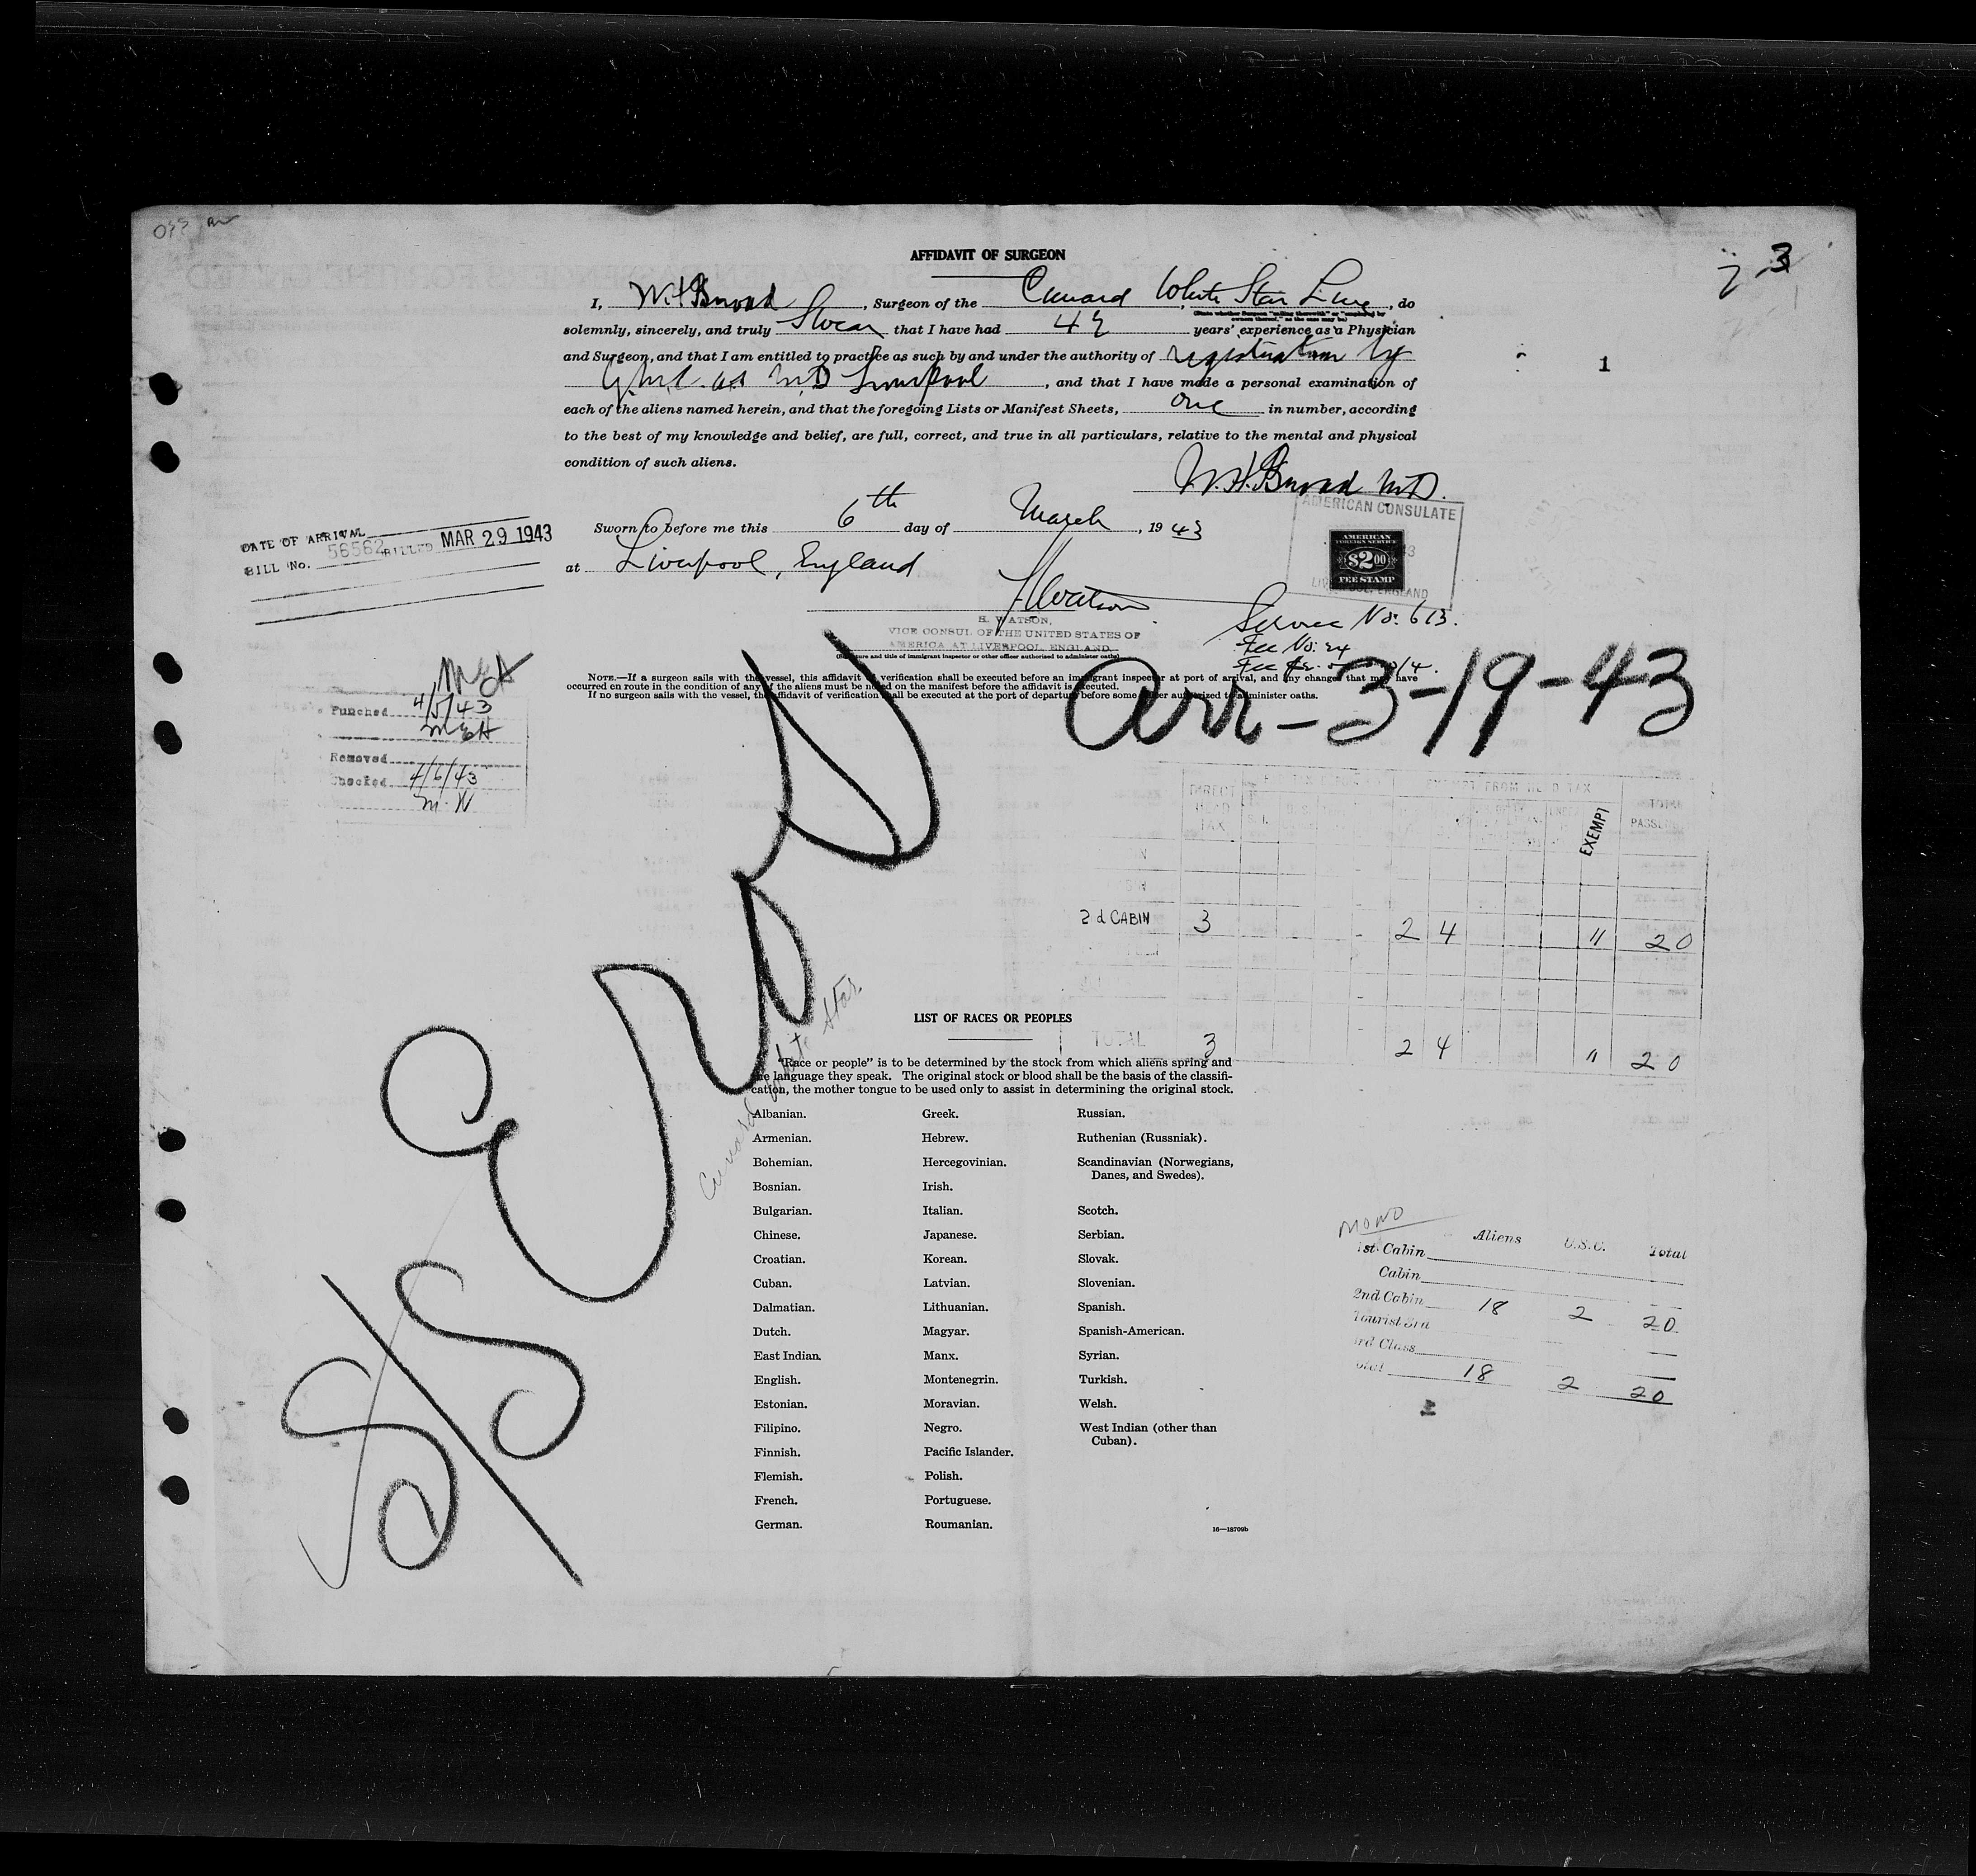 3
AFFIDAVIT OF SURGEON
I, W. H. Broad, Surgeon of the Cunard White Star Line, do
solemnly, sincerely, and truly Swear that I have had 42 years' experience as a Physician
and Surgeon, and that I am entitled to practice as such by and under the authority of registration by
G.M.C. as M.D. Liverpool, and that I have made a personal examination of
1
each of the aliens named herein, and that the foregoing Lists or Manifest Sheets, one in number, according
to the best of my knowledge and belief, are full, correct, and true in all particulars, relative to the mental and physical
condition of such aliens.
W. H. Broad M.D.
AMERICAN CONSULATE
Sworn to before me this 6th day of March, 1943
at Liverpool, England
AMERICAN
FOREIGN SERVICE
$2.00
FEE STAMP
LIVERPOOL, ENGLAND
DATE OF ARRIVAL
BILL No. 56562 BILLED MAR 29 1943
H Watson
H. WATSON,
VICE CONSUL OF THE UNITED STATES OF
AMERICA AT LIVERPOOL, ENGLAND.
(Signature and title of immigrant inspector or other officer authorized to administer oaths)
Service No. 613.
Fee No. 24
NOTE.—If a surgeon sails with the vessel, this affidavit of verification shall be executed before an immigrant inspector at port of arrival, and any changes that may have
occurred en route in the condition of any of the aliens must be noted on the manifest before the affidavit is executed.
If no surgeon sails with the vessel, the affidavit of verification shall be executed at the port of departure before some officer authorized to administer oaths.
MEH
Punched 4/5/43
MEH
Removed
Checked 4/6/43
M.W
Arr-3-19-43
S/S Eros
Cunard White Star
DIRECT HEAD TAX
EXEMPT FROM HEAD TAX
EXEMPT
TOTAL PASSENGERS
2d CABIN 3 2 4 11 20
TOTAL 3 2 4 11 20
LIST OF RACES OR PEOPLES
"Race or people" is to be determined by the stock from which aliens spring and
the language they speak. The original stock or blood shall be the basis of the classifi-
cation, the mother tongue to be used only to assist in determining the original stock.
Albanian.
Armenian.
Bohemian.
Bosnian.
Bulgarian.
Chinese.
Croatian.
Cuban.
Dalmatian.
Dutch.
East Indian.
English.
Estonian.
Filipino.
Finnish.
Flemish.
French.
German.
Greek.
Hebrew.
Hercegovinian.
Irish.
Italian.
Japanese.
Korean.
Latvian.
Lithuanian.
Magyar.
Manx.
Montenegrin.
Moravian.
Negro.
Pacific Islander.
Polish.
Portuguese.
Roumanian.
Russian.
Ruthenian (Russniak).
Scandinavian (Norwegians,
Danes, and Swedes).
Scotch.
Serbian.
Slovak.
Slovenian.
Spanish.
Spanish-American.
Syrian.
Turkish.
Welsh.
West Indian (other than
Cuban).
16—18709b
Aliens U.S.C. Total
1st Cabin
Cabin
2nd Cabin 18 2 20
Tourist 3rd
3rd Class
Total 18 2 20